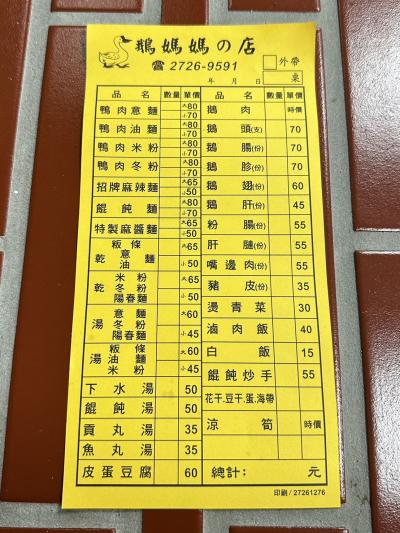 鵝媽媽の店
☎2726-9591
年 月 日
外帶
桌
品名 數量 單價 品名 數量 單價
鴨肉意麵 大80 小70
鴨肉油麵 大80 小70
鴨肉米粉 大80 小70
鴨肉冬粉 大80 小70
招牌麻辣麵 大65 小50
餛飩麵 大80 小70
特製麻醬麵 大65 小50
乾 粄條 意麵 油麵 大65 小50
乾 米粉 冬粉 陽春麵 大65 小50
湯 意麵 冬粉 陽春麵 大60 小45
湯 粄條 油麵 米粉 大60 小45
下水湯 50
餛飩湯 50
貢丸湯 35
魚丸湯 35
皮蛋豆腐 60
鵝肉 時價
鵝頭(支) 70
鵝腸(份) 70
鵝胗(份) 70
鵝翅(份) 60
鵝肝(份) 45
粉腸(份) 55
肝腱(份) 55
嘴邊肉(份) 55
豬皮(份) 35
燙青菜 30
滷肉飯 40
白飯 15
餛飩炒手 55
花干.豆干.蛋.海帶
涼筍 時價
總計: 元
印刷/27261276